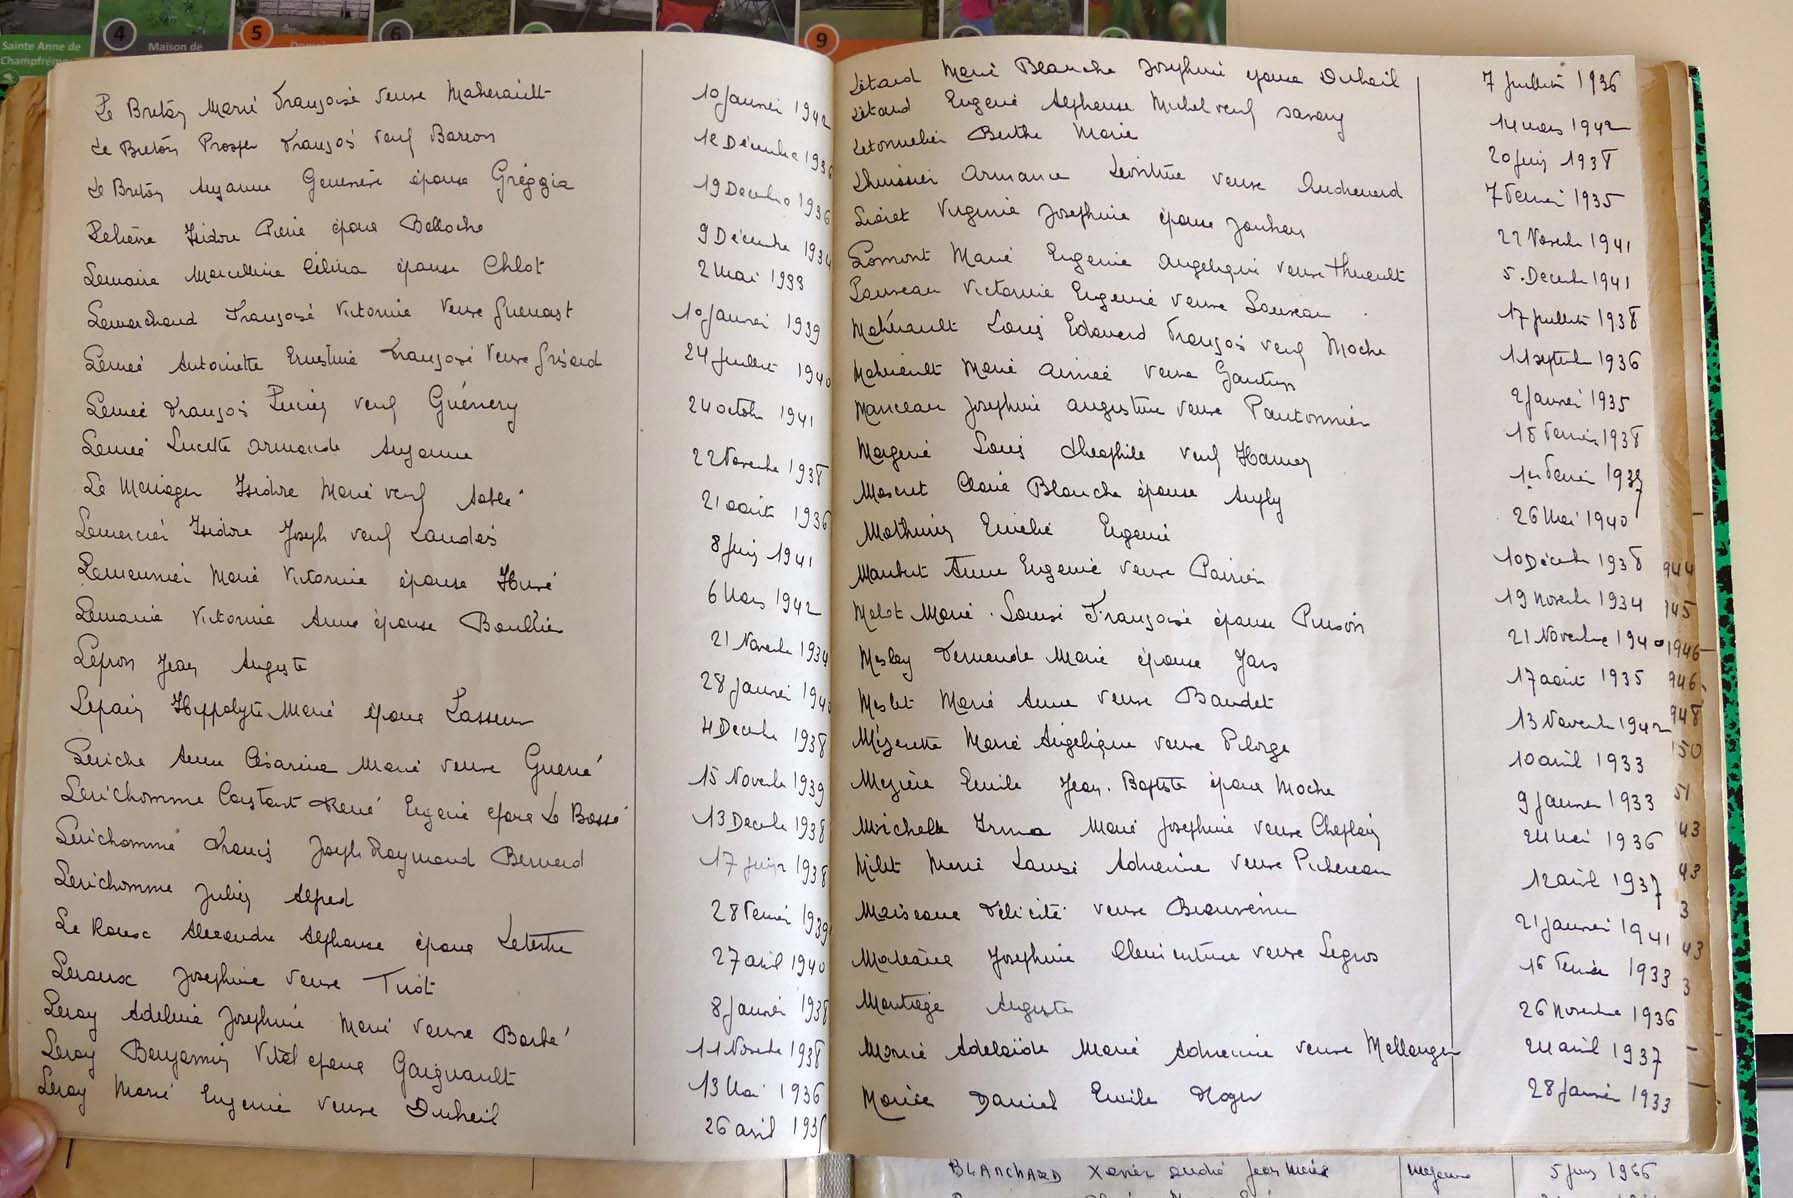 Sainte Anne de
Champfrémont
4
Maison de
5
6
9
Le Breton Marie Françoise veuve Maherault 10 Janvier 1942
Le Breton Prosper François veuf Barron 12 Décembre 1936
Le Breton Suzanne Geneviève épouse Gréggia 19 Decembre 1936
Lelièvre Isidore Pierre époux Belloche 9 Décembre 1934
Lemaire Marcelline Célina épouse Chlot 2 Mai 1933
Lemarchand Françoise Victorine Veuve Guenast 10 Janvier 1939
Lemée Antoinette Ernestine Françoise Veuve Grisard 24 Juillet 1940
Lemée François Lucien veuf Guénery 24 octobre 1941
Lemée Lucette Armande Suzanne 22 Novembre 1938
Le Menager Isidore Marie veuf Sablé 21 août 1936
Lemercier Isidore Joseph veuf Landais 8 Juin 1941
Lemeunier Marie Victorine épouse Huré 6 Mars 1942
Lemoine Victorine Anne épouse Boullier 21 Novembre 1934
Lepron Jean Auguste 28 Janvier 1940
Lepain Hippolyte Marie époux Lasseur 4 Decembre 1938
Leriche Anna Césarine Marie veuve Guerré 15 Novembre 1939
Lerichomme Constant René Eugène époux Le Bossé 13 Decembre 1938
Lerichomme Francis Joseph Raymond Bernard 17 Juin 1938
Lerichomme Julien Alfred 28 Fevrier 1939
Le Alexandre Alphonse époux Letertre 27 avril 1940
Leroux Joséphine veuve Tirot 8 Janvier 1938
Leroy Adeline Joséphine Marie veuve Barbé 11 Novembre 1938
Leroy Benjamin Vital époux Gaignault 13 Mai 1936
Leroy Marie Eugenie veuve Duheil 26 avril 193
Létard Marie Blanche Joséphine épouse Duheil 7 Juillet 1936
Létard Eugène Alphonse Michel veuf Savary 14 mars 1942
Letonnelier Berthe Marie 20 Juin 1938
Lhuissier Armance Léontine veuve 7 Fevrier 1935
Liéret Virginie Joséphine épouse Jouhan 22 Novembre 1941
Lomont Marie Eugenie Angelique veuve Thuault 5 Decembre 1941
Louveau Victorine Eugenie veuve Louveau 17 Juillet 1938
Mahérault Louis Edouard François veuf Moche 11 septembre 1936
Mahérault Marie Aimée veuve Gautier 2 Janvier 1935
Manceau Joséphine Augustine veuve Pautonnier 18 Fevrier 1938
Margerie Louis Théophile veuf Hamer 1er Fevrier 1937
Mascret Claire Blanche épouse 26 Mai 1940
Mathurin Emilie Eugenie 10 Décembre 1938
Maubert Anne Eugenie veuve Poirier 19 Novembre 1934
Melot Marie-Louise Françoise épouse Pinson 21 Novembre 1940
Meslay Fernande Marie épouse Jars 17 août 1935
Meslet Marie Anne veuve Baudet 13 Novembre 1942
Mézerette Marie Angélique veuve Plorge 10 avril 1933
Mézière Emile Jean-Baptiste époux Moche 9 Janvier 1933
Michelle Irma Marie Joséphine veuve Chaplain 24 Mai 1936
Milet Marie Louise Adrienne veuve Pichereau 12 avril 1937
Félicité veuve Beauvenu 21 Janvier 1941
Joséphine Clémentine veuve Legros 16 Fevrier 1933
Montrège Auguste 26 Novembre 1936
Morice Adelaïde Marie Adrienne veuve Mellanger 24 avril 1937
Morice Daniel Emile Roger 28 Janvier 1933
944
945
1946
946
948
150
51
43
43
3
43
3
BLANCHARD Xavier André Jean Marie 5 Juin 1966